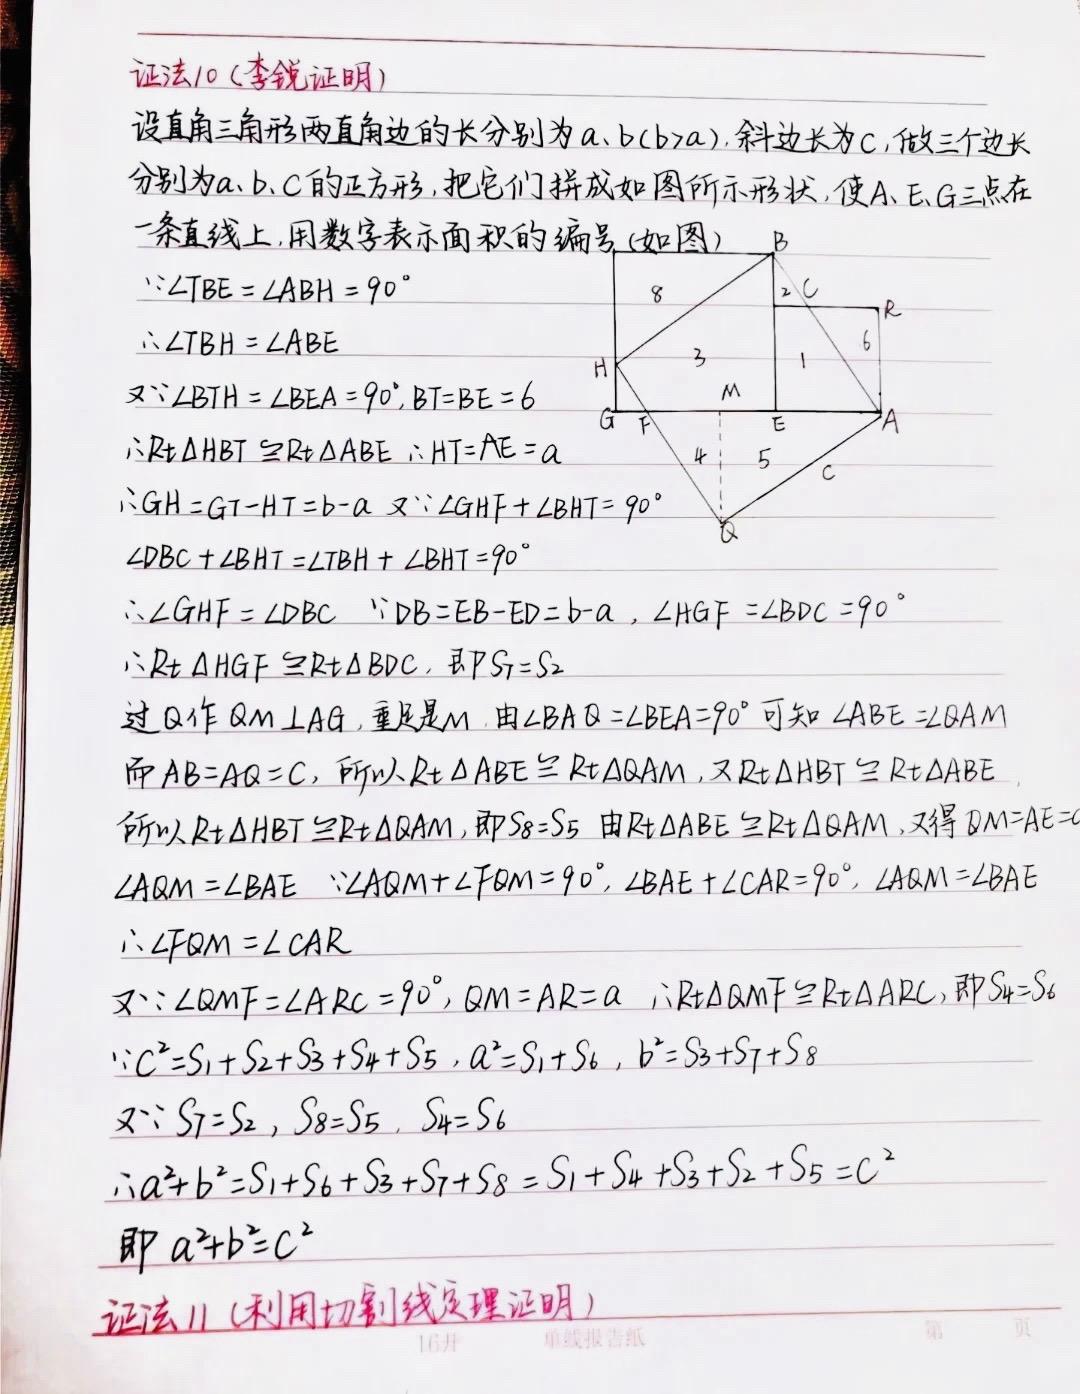 证法10(李锐证明)
设直角三角形两直角边的长分别为a、b(b>a),斜边长为c,做三个边长
分别为a、b、c的正方形,把它们拼成如图所示形状,使A、E、G三点在
一条直线上,用数字表示面积的编号(如图)
∵∠TBE=∠ABH=90°
∴∠TBH=∠ABE
又∵∠BTH=∠BEA=90°,BT=BE=6
∴Rt△HBT≌Rt△ABE ∴HT=AE=a
∴GH=GT-HT=b-a 又∵∠GHF+∠BHT=90°
∠DBC+∠BHT=∠TBH+∠BHT=90°
∴∠GHF=∠DBC ∵DB=EB-ED=b-a,∠HGF=∠BDC=90°
∴Rt△HGF≌Rt△BDC,即S7=S2
过Q作QM⊥AG,垂足是M,由∠BAQ=∠BEA=90°可知∠ABE=∠QAM
而AB=AQ=C,所以Rt△ABE≌Rt△QAM,又Rt△HBT≌Rt△ABE
所以Rt△HBT≌Rt△QAM,即S8=S5 由Rt△ABE≌Rt△QAM,又得QM=AE=a
∠AQM=∠BAE ∵∠AQM+∠FQM=90°,∠BAE+∠CAR=90°,∠AQM=∠BAE
∴∠FQM=∠CAR
又∵∠QMF=∠ARC=90°,QM=AR=a ∴Rt△QMF≌Rt△ARC,即S4=S6
∵c²=S1+S2+S3+S4+S5,a²=S1+S6,b²=S3+S7+S8
又∵S7=S2,S8=S5,S4=S6
∴a²+b²=S1+S6+S3+S7+S8=S1+S4+S3+S2+S5=c²
即a²+b²=c²
证法11(利用切割线定理证明)
B
8
2
C
R
6
H
3
1
M
G
F
E
A
4
5
C
Q
16开 单线报告纸 第 页